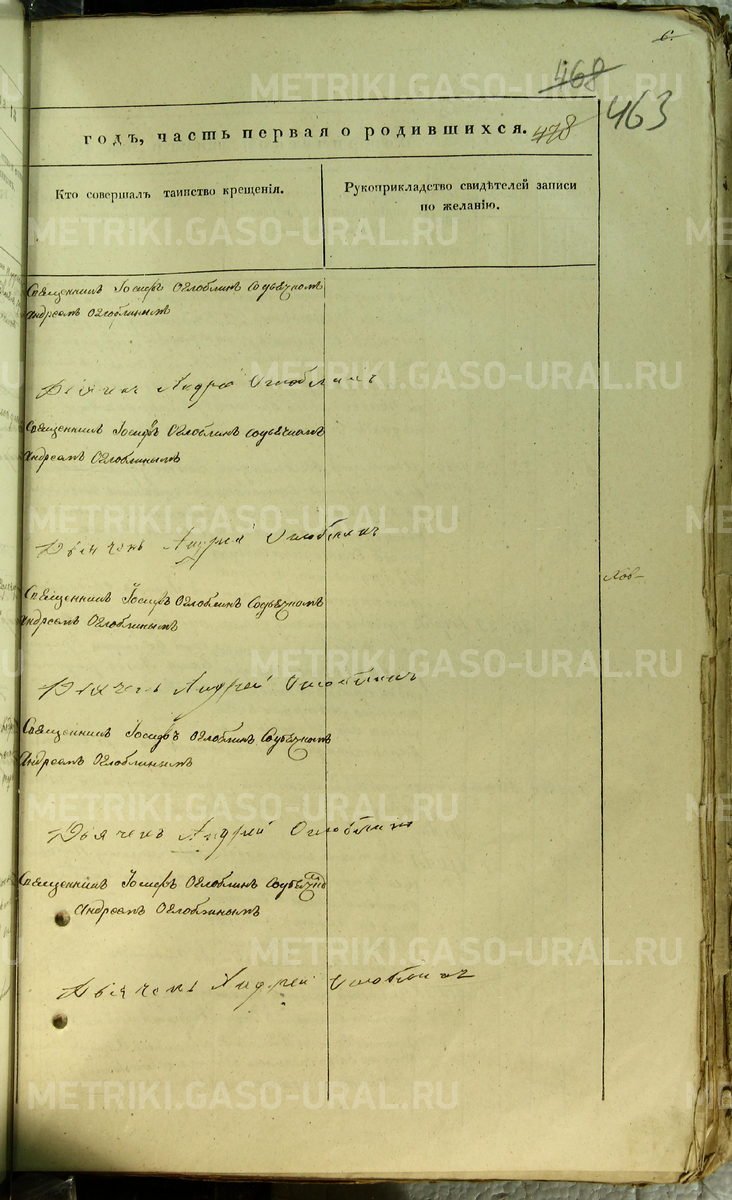 6.
468
463
годъ, часть первая о родившихся.
478
Кто совершалъ таинство крещенія.
Рукоприкладство свидѣтелей записи
по желанію.
Священникъ Іосифъ Оглоблинъ
Андреемъ Оглоблинымъ
Дьячекъ Андрей Оглоблинъ
Священникъ Іосифъ Оглоблинъ
Андреемъ Оглоблинымъ
Дьячекъ Андрей Оглоблинъ
Священникъ Іосифъ Оглоблинъ
Андреемъ Оглоблинымъ
Дьячекъ Андрей Оглоблинъ
Священникъ Іосифъ Оглоблинъ
Андреемъ Оглоблинымъ
Дьячекъ Андрей Оглоблинъ
Священникъ Іосифъ Оглоблинъ
Андреемъ Оглоблинымъ
Дьячекъ Андрей Оглоблинъ
METRIKI.GASO-URAL.RU